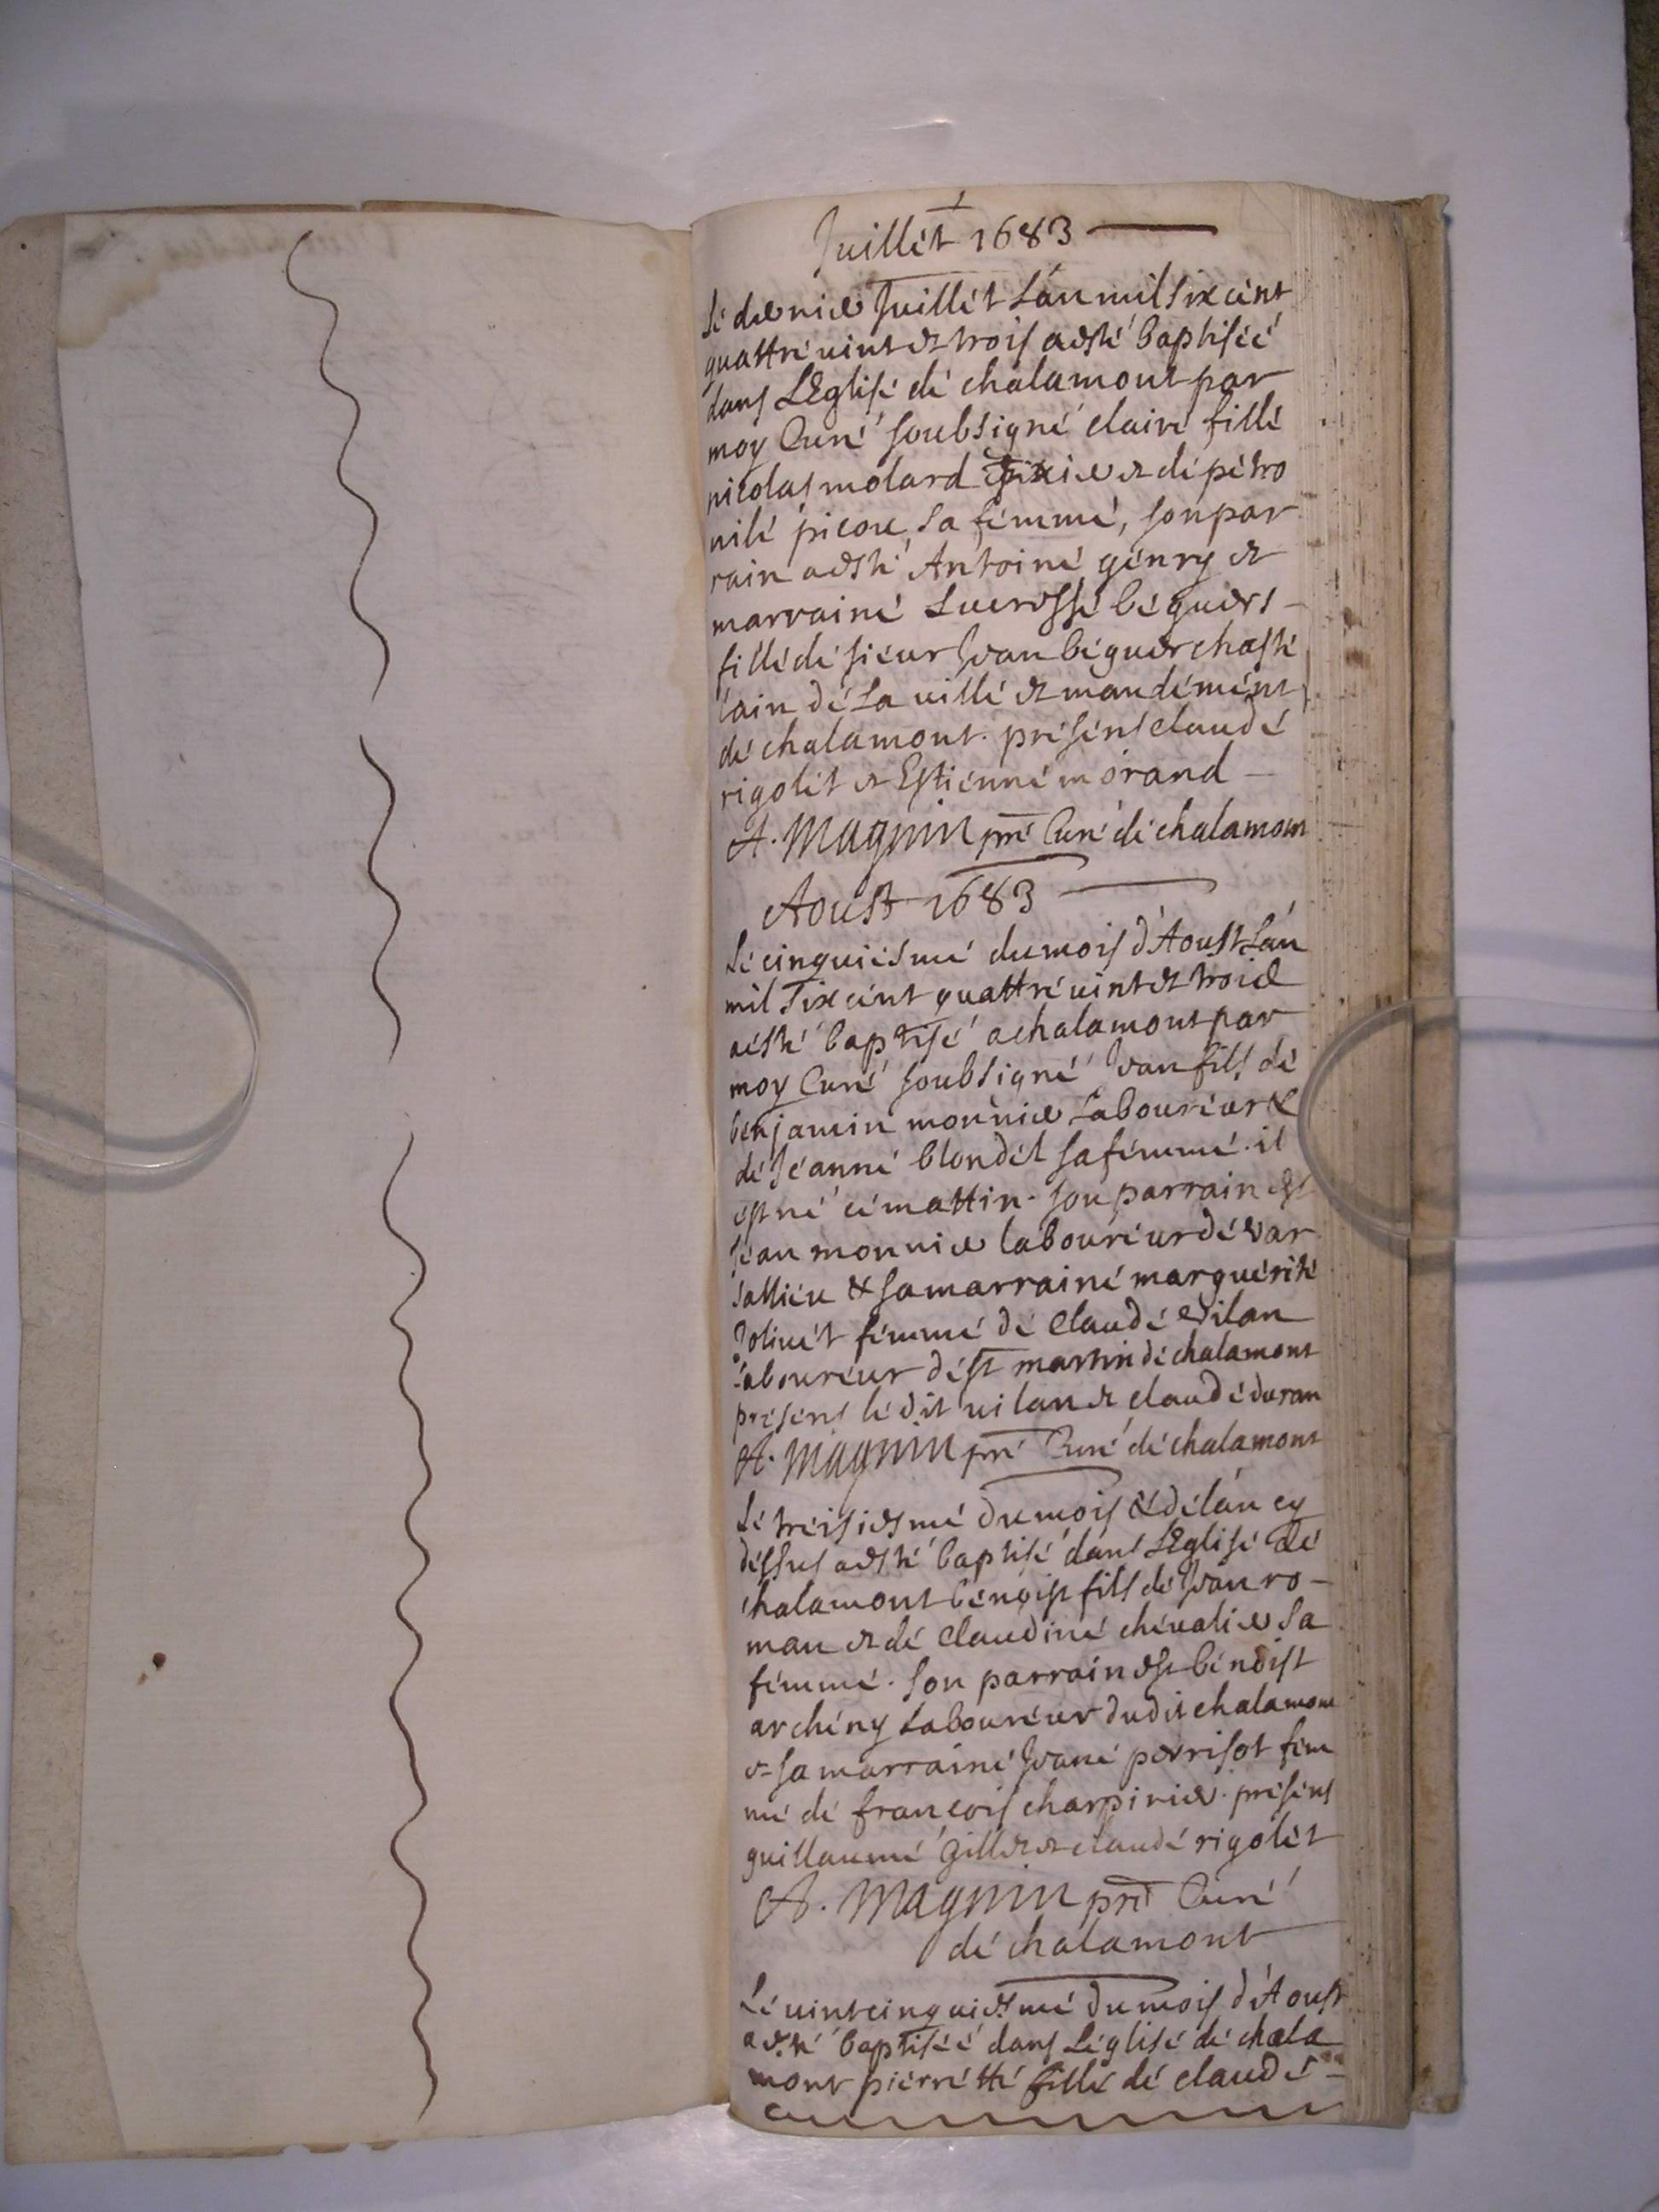 1
Juillét 1683
Lé dernier Juillét L'án mil six cént
quattré vint et trois a esté baptiséé
dans L'Eglisé dé chalamont par
moy Curé soubsigné clairé fillé
nicolas molard et dé pétro
nilé picou sa fémmé, son par
rain a esté Antoiné génry et
marrainé Lucressé béguers
fillé dé sieur Jean béguer chasté
lain dé La villé et mandémént
dé chalamont. préséns claudé
rigolét et Estiénné morand
A. Magnin pré Curé dé chalamont
Aoust 1683
Lé cinquiésmé du mois d'Aoust L'án
mil six cént quattré vint et trois
a ésté baptisé a chalamont par
moy Curé soubsigné Jean fils dé
bénjamin monnier Labouréur &
dé Jéanné blondél sa fémmé. il
ést né cé mattin. son parrain est
Jéan monnier labouréur dé var
sallieu & sa marrainé marguérité
Jolivét fémmé dé Claudé vilan
labouréur dé st martin dé chalamont
présens lédit vilan et claudé duran
A. Magnin pré Curé dé chalamont
Lé tréisiesmé du mois & dé l'án cy
déssus a esté baptisé dans L'Eglisé dé
chalamont bénoist fils dé Jean ro-
man et dé Claudiné chévalier sa
fémmé. son parrain est bénoist
archény Labouréur dudit chalamont
et sa marrainé Jeané perrisot fém
mé dé françois charpinier. présens
guillaumé Gillet et claudé rigolét
A. Magnin pré Curé
dé chalamont
Lé vintcinquiesmé du mois d'Aoust
a esté baptiséé dans L'églisé dé chala
mont piérrétté fillé dé claudé